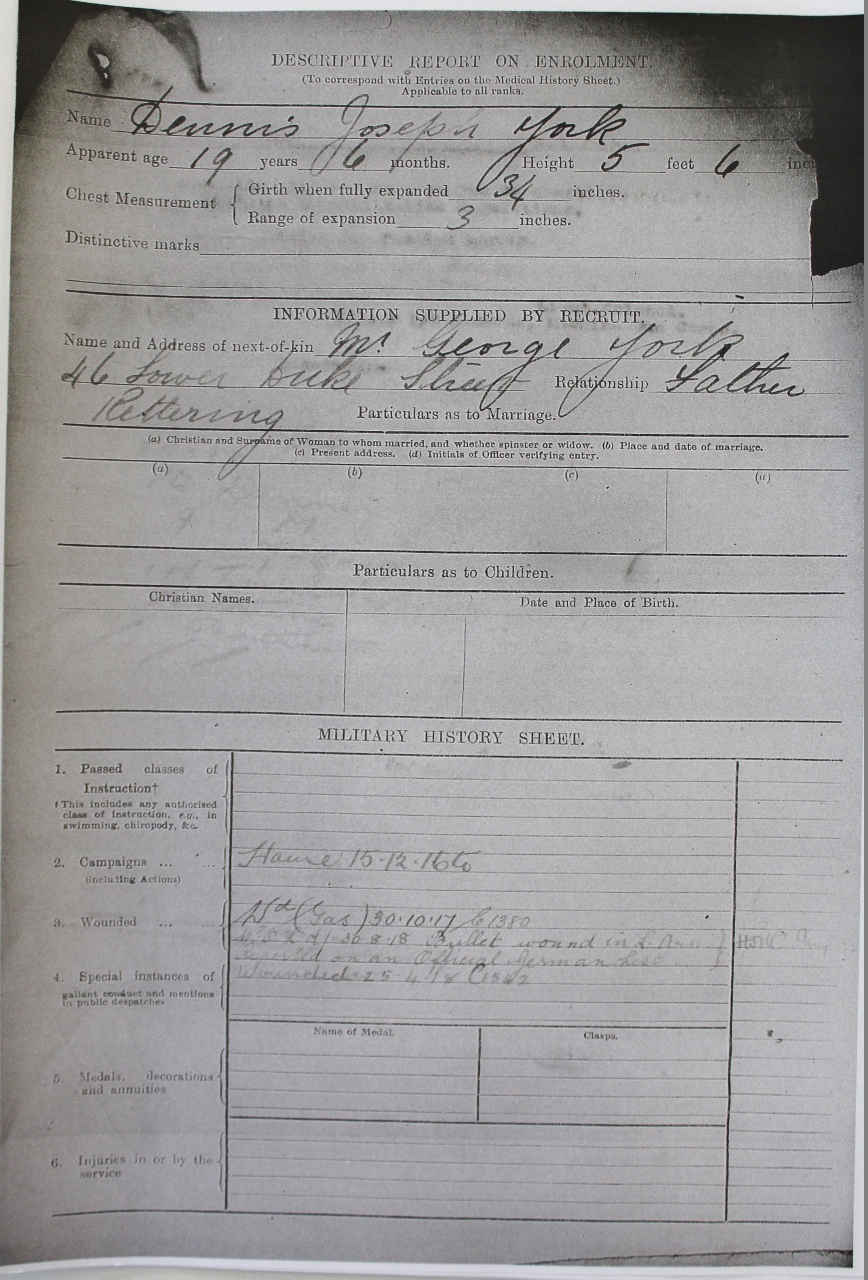 DESCRIPTIVE REPORT ON ENROLMENT.
(To correspond with Entries on the Medical History Sheet.)
Applicable to all ranks.
Name Dennis Joseph York
Apparent age 19 years 6 months. Height 5 feet 6 inc
Chest Measurement { Girth when fully expanded 34 inches.
Range of expansion 3 inches.
Distinctive marks
INFORMATION SUPPLIED BY RECRUIT.
Name and Address of next-of-kin Mr George York
46 Lower Duke Street Relationship Father
Kettering Particulars as to Marriage.
(a) Christian and Surname of Woman to whom married, and whether spinster or widow. (b) Place and date of marriage.
(c) Present address. (d) Initials of Officer verifying entry.
(a) (b) (c) (d)
Particulars as to Children.
Christian Names. Date and Place of Birth.
MILITARY HISTORY SHEET.
1. Passed classes of
Instruction†
† This includes any authorised
class of instruction, e.g., in
swimming, chiropody, &c.
2. Campaigns ... ... Home 15.12.16 to
(including Actions)
3. Wounded ... ... Wd (Gas) 30.10.17 C1380
30.8.18 Bullet wound in L. Arm
Reported on an Official German List
4. Special instances of Wounded 25.4.18
gallant conduct and mentions
in public despatches
Name of Medal. Clasps.
5. Medals, decorations
and annuities
6. Injuries in or by the
service